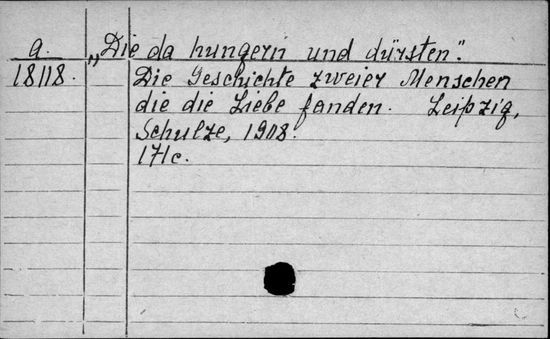 a. „Die da hungern und dürsten“.
18118. Die Geschichte zweier Menschen
die die Liebe fanden. Leipzig,
Schulze, 1908.
171c.